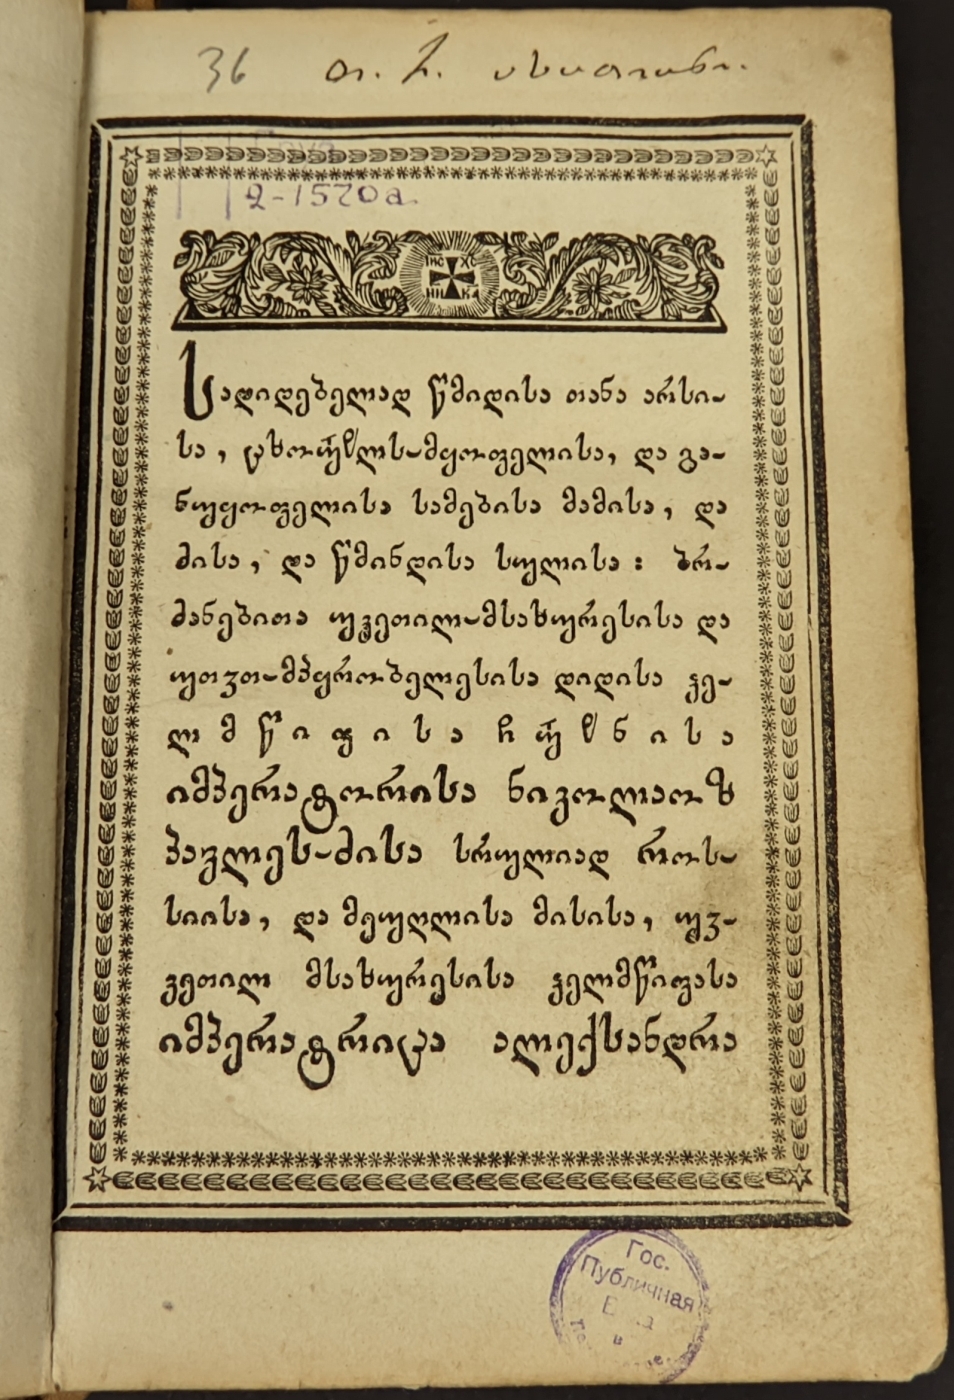 36
2-1570а.
ІИС ХС
НИ КА
სადიდებელად წმიდისა თანა არსი-
სა, ცხორებისა-მყოფელისა, და გა-
ნუყოფელისა სამებისა მამისა, და
ძისა, და წმინდისა სულისა: ბრ-
ძანებითა უკეთილ-მსახურესისა და
უთვთ-მპყრობელესისა დიდისა ჴე-
ლ მ წ ი ფ ი ს ა ჩ უ ნ ი ს ა
იმპერატორისა ნიკოლაოზ
პავლეს-ძისა სრულიად როს-
სიისა, და მეუღლისა მისისა, უვ-
კეთილ მსახურესისა ჴელმწიფისა
იმპერატრიცა ალექსანდრა
Гос.
Публичная